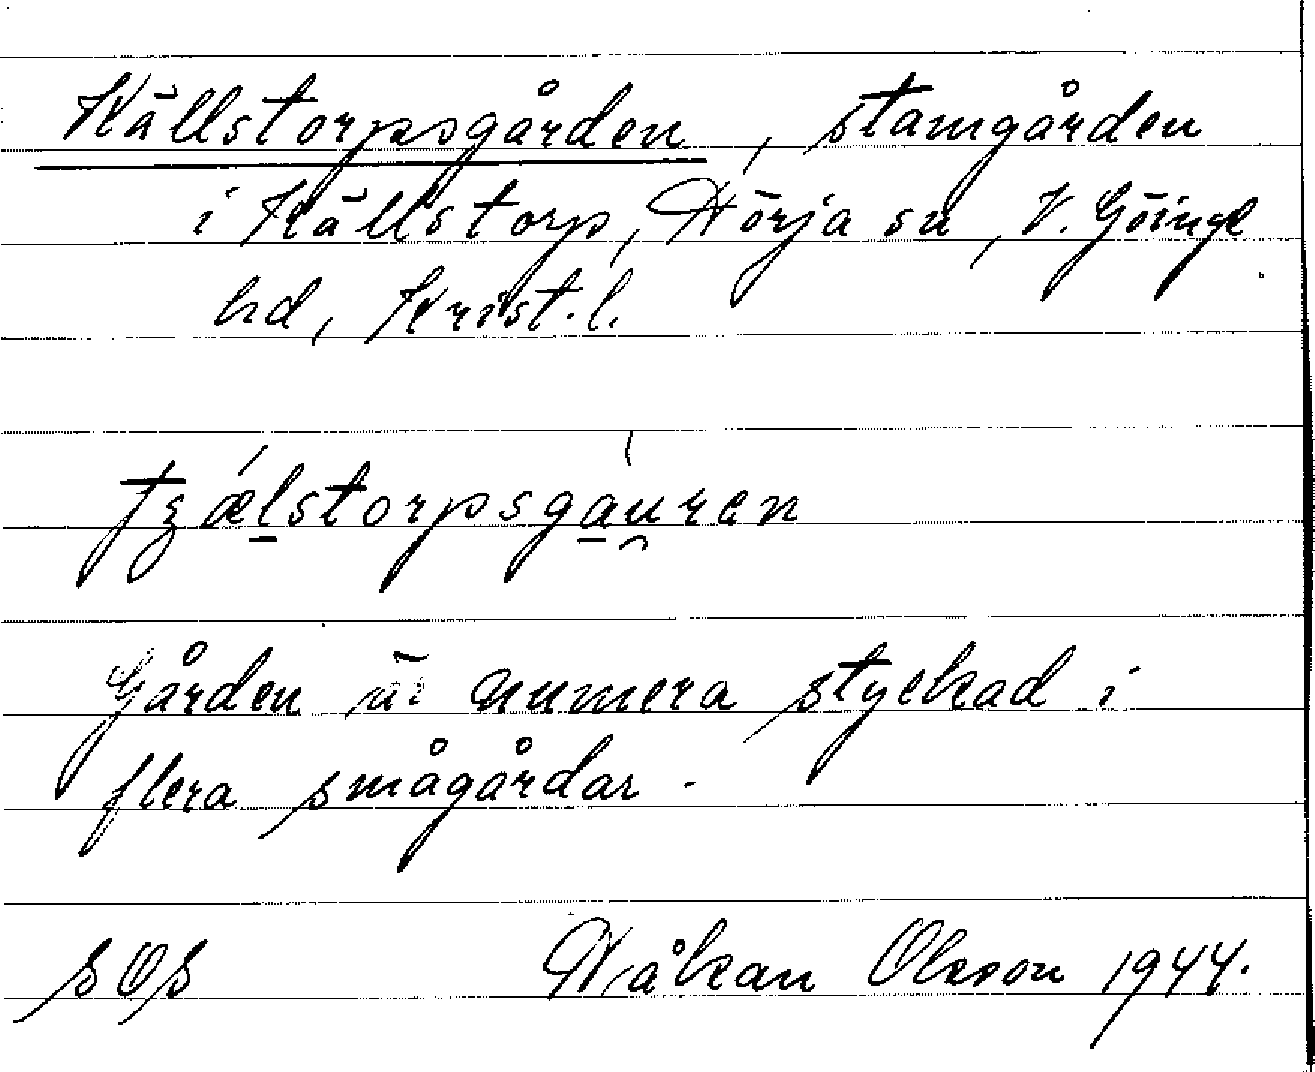 Källstorpsgården, stamgården
i Källstorp, Hörja sn, V. Göinge
hd, Krist. l.
tʒǽlstorpsgàu̯ren
Gården är numera styckad i
flera smågårdar.
SOS Håkan Olsson 1944.